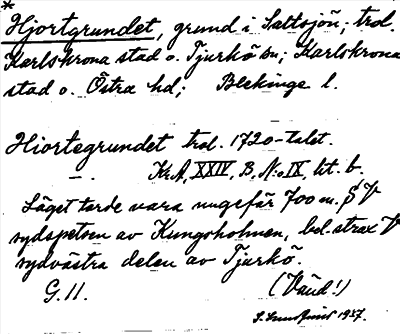 *
Hjortgrundet, grund i Saltsjön; trol.
Karlskrona stad o. Tjurkö sn; Karlskrona
stad o. Östra hd; Blekinge l.
Hiortegrundet trol. 1720-talet.
—"— Kr.A, XXIV, B, N:o IX, lit. b.
Läget torde vara ungefär 700 m. SV
sydspetsen av Kungsholmen, bel. strax V
sydvästra delen av Tjurkö.
G. 11. (Vänd!)
1937.